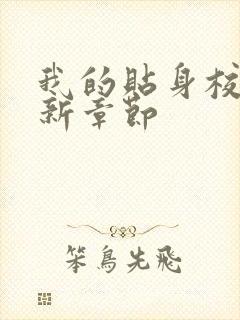 我的貼身校
新章節
笨鳥先飛